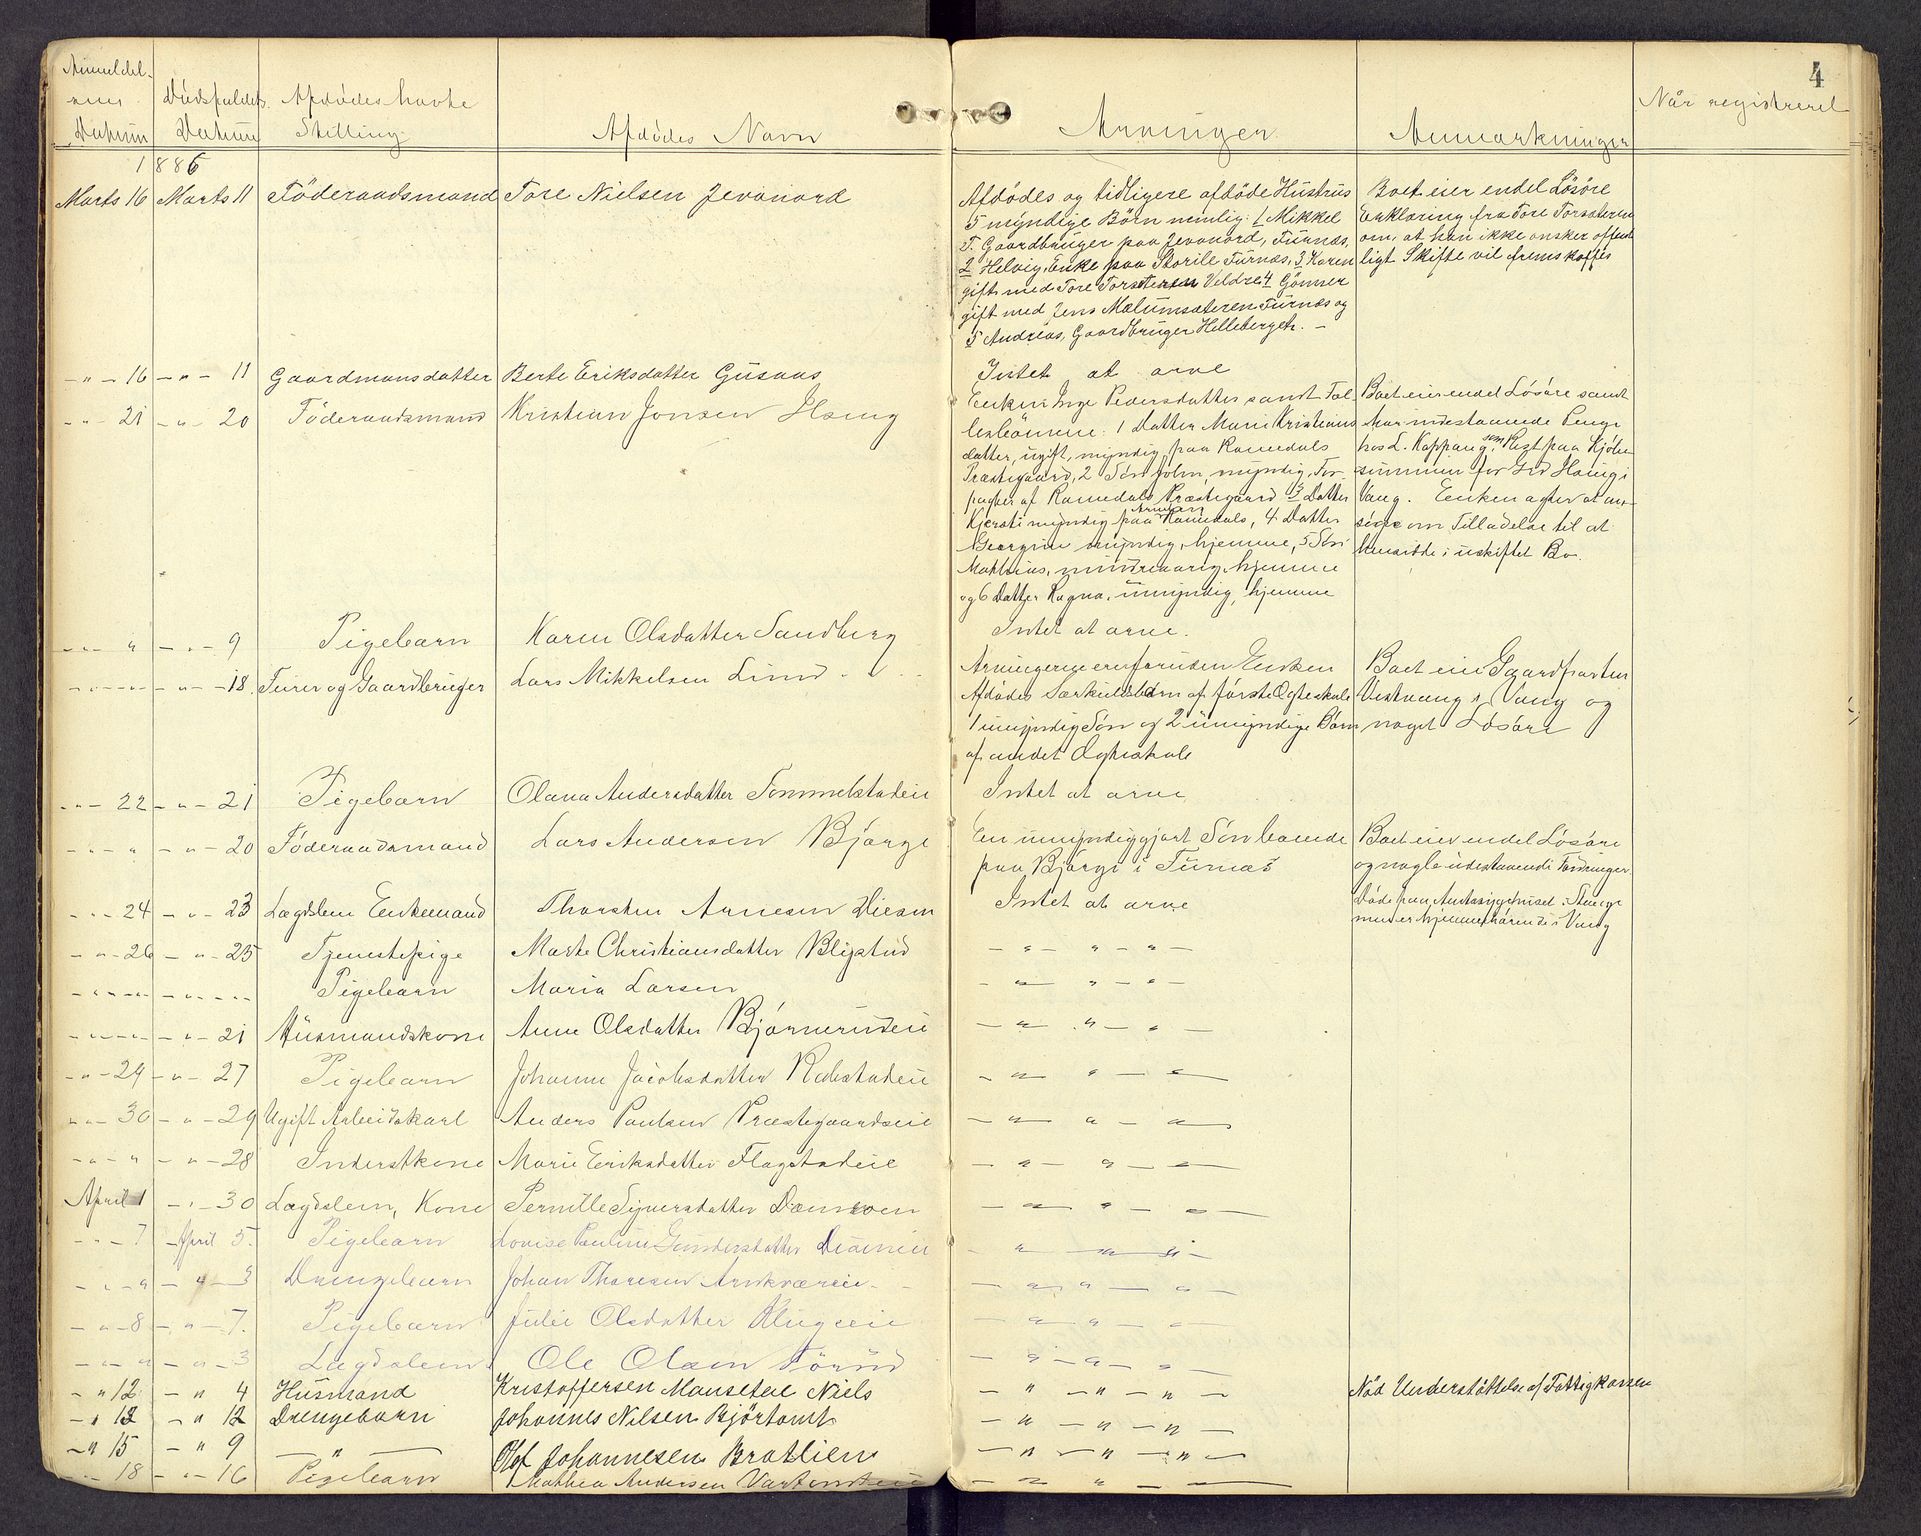 4
Anmeldel-
sens Datum
Dödsfaldets Datum
Afdödes havte Stilling
Afdödes Navn
Arvinger
Anmærkninger
Når registreret
1886
Marts 16 Marts 11 Föderaadsmand Tore Nielsen Jevanord
Afdödes og tidligere afdöde Hustrus
5 myndige Börn nemlig: 1 Mikkel
T. Gaardbruger paa Jevanord, Furnæs,
2 Helvig, Enke paa Storile Furnæs, 3 Karen
gift med Tore Torsæteren Veldre 4 Gönner
gift med Jens Mælumsæteren Furnæs og
5 Andreas, Gaardbruger Helleberget. –
Boet eier endel Lösöre
Erklæring fra Tore Torsæteren
om, at han ikke önsker offent
ligt Skifte vil fremskaffes
– " – 16 – " – 11 Gaardmansdatter Berte Eriksdatter Gusaas
Intet at arve
– " – 21 – " – 20 Föderaadsmand Kristian Jonsen Haug
Enken Inge Pedersdatter samt Fæl
lesbörnene: 1 Datter Marie Kristians
datter, ugift, myndig, paa Romedals
Præstegaard, 2 Sön John, myndig, For-
pagter af Romedals Præstegaard 3 Datter
Kjersti myndig paa Romedals, 4 Datter
Georgine umyndig, hjemme, 5 Sön
Mathias, mindreaarig, hjemme
og 6 Datter Ragna, umyndig, hjemme
Boet eier endel Lösöre samt
har indestaaende Penge
hos L. Kappang, som Rest paa Kjöbe
summen for Grd Haug i
Vang. Enken agter at an-
söge om Tilladelse til at
hensidde i uskiftet Bo.
– " – " – " – 9 Pigebarn Karen Olsdatter Sandberg
Intet at arve.
– " – " – " – 18. Furer og Gaardbruger Lars Mikkelsen Lund
Arvingerne ere foruden Enken
Afdödes Særkuldsbörn af förste Ægteskab
1 umyndig Sön og 2 umyndige Börn
af andet Ægteskab
Boet eier Gaardparten
Vestvang i Vang og
noget Lösöre
– " – 22 – " – 21 Pigebarn Olava Andersdatter Tommelstadeie
Intet at arve
– " – " – " – 20 Föderaadsmand Lars Andersen Bjørge
En umyndiggjort Sön boende
paa Bjørge i Furnæs
Boet eier endel Lösöre
og nogle udestaaende Fordringer
– " – 24 – " – 23 Lægdslem Enkemand Thorsten Arnesen Diesen
Intet at arve
Döde paa Amtssygehuset i Stange
men er hjemmehörende i Vang
– " – 26 – " – 25 Tjenestepige Marte Christiansdatter Bligstad
– " – " – " –
– " – " – " – " – Pigebarn Maria Larsen
– " – " – " –
– " – " – " – 21 Husmandskone Anne Olsdatter Bjørnerudeie
– " – " – " –
– " – 29 – " – 27 Pigebarn Johanne Jacobsdatter Rabstadeie
– " – " – " –
– " – 30 – " – 29 Ugift Arbeidskarl Anders Paulsen Præstegaardseie
– " – " – " –
– " – " – " – 28 Inderstkone Marie Eriksdatter Flagstadeie
– " – " – " –
April 1 – " – 30 Lægdslem, Kone Pernille Syversdatter
– " – " – " –
– " – 7 – April 5. Pigebarn Lovise Pauline Gundersdatter
– " – " – " –
– " – " – " – 3 Drengebarn Johan Thoresen Arnkværneie
– " – " – " –
– " – 8 – " – 7. Pigebarn Julie Olsdatter Klugseie
– " – " – " –
– " – " – " – 3 Lægdslem Ole Olsen Törud
– " – " – " –
– " 12 – " 4 Husmand Kristoffersen Mauseteie Niels
– " – " – " – Nöd Understöttelse af Fattigkassen
– " 12 – " 12 Drengebarn Johannes Nilsen Björtomt
– " – " – " –
– " 15 – " 9 – " – Olef Johannesen Bratlien
– " – " – " –
– " – 18 – " – 16 Pigebarn Mathea Andersen
– " – " –